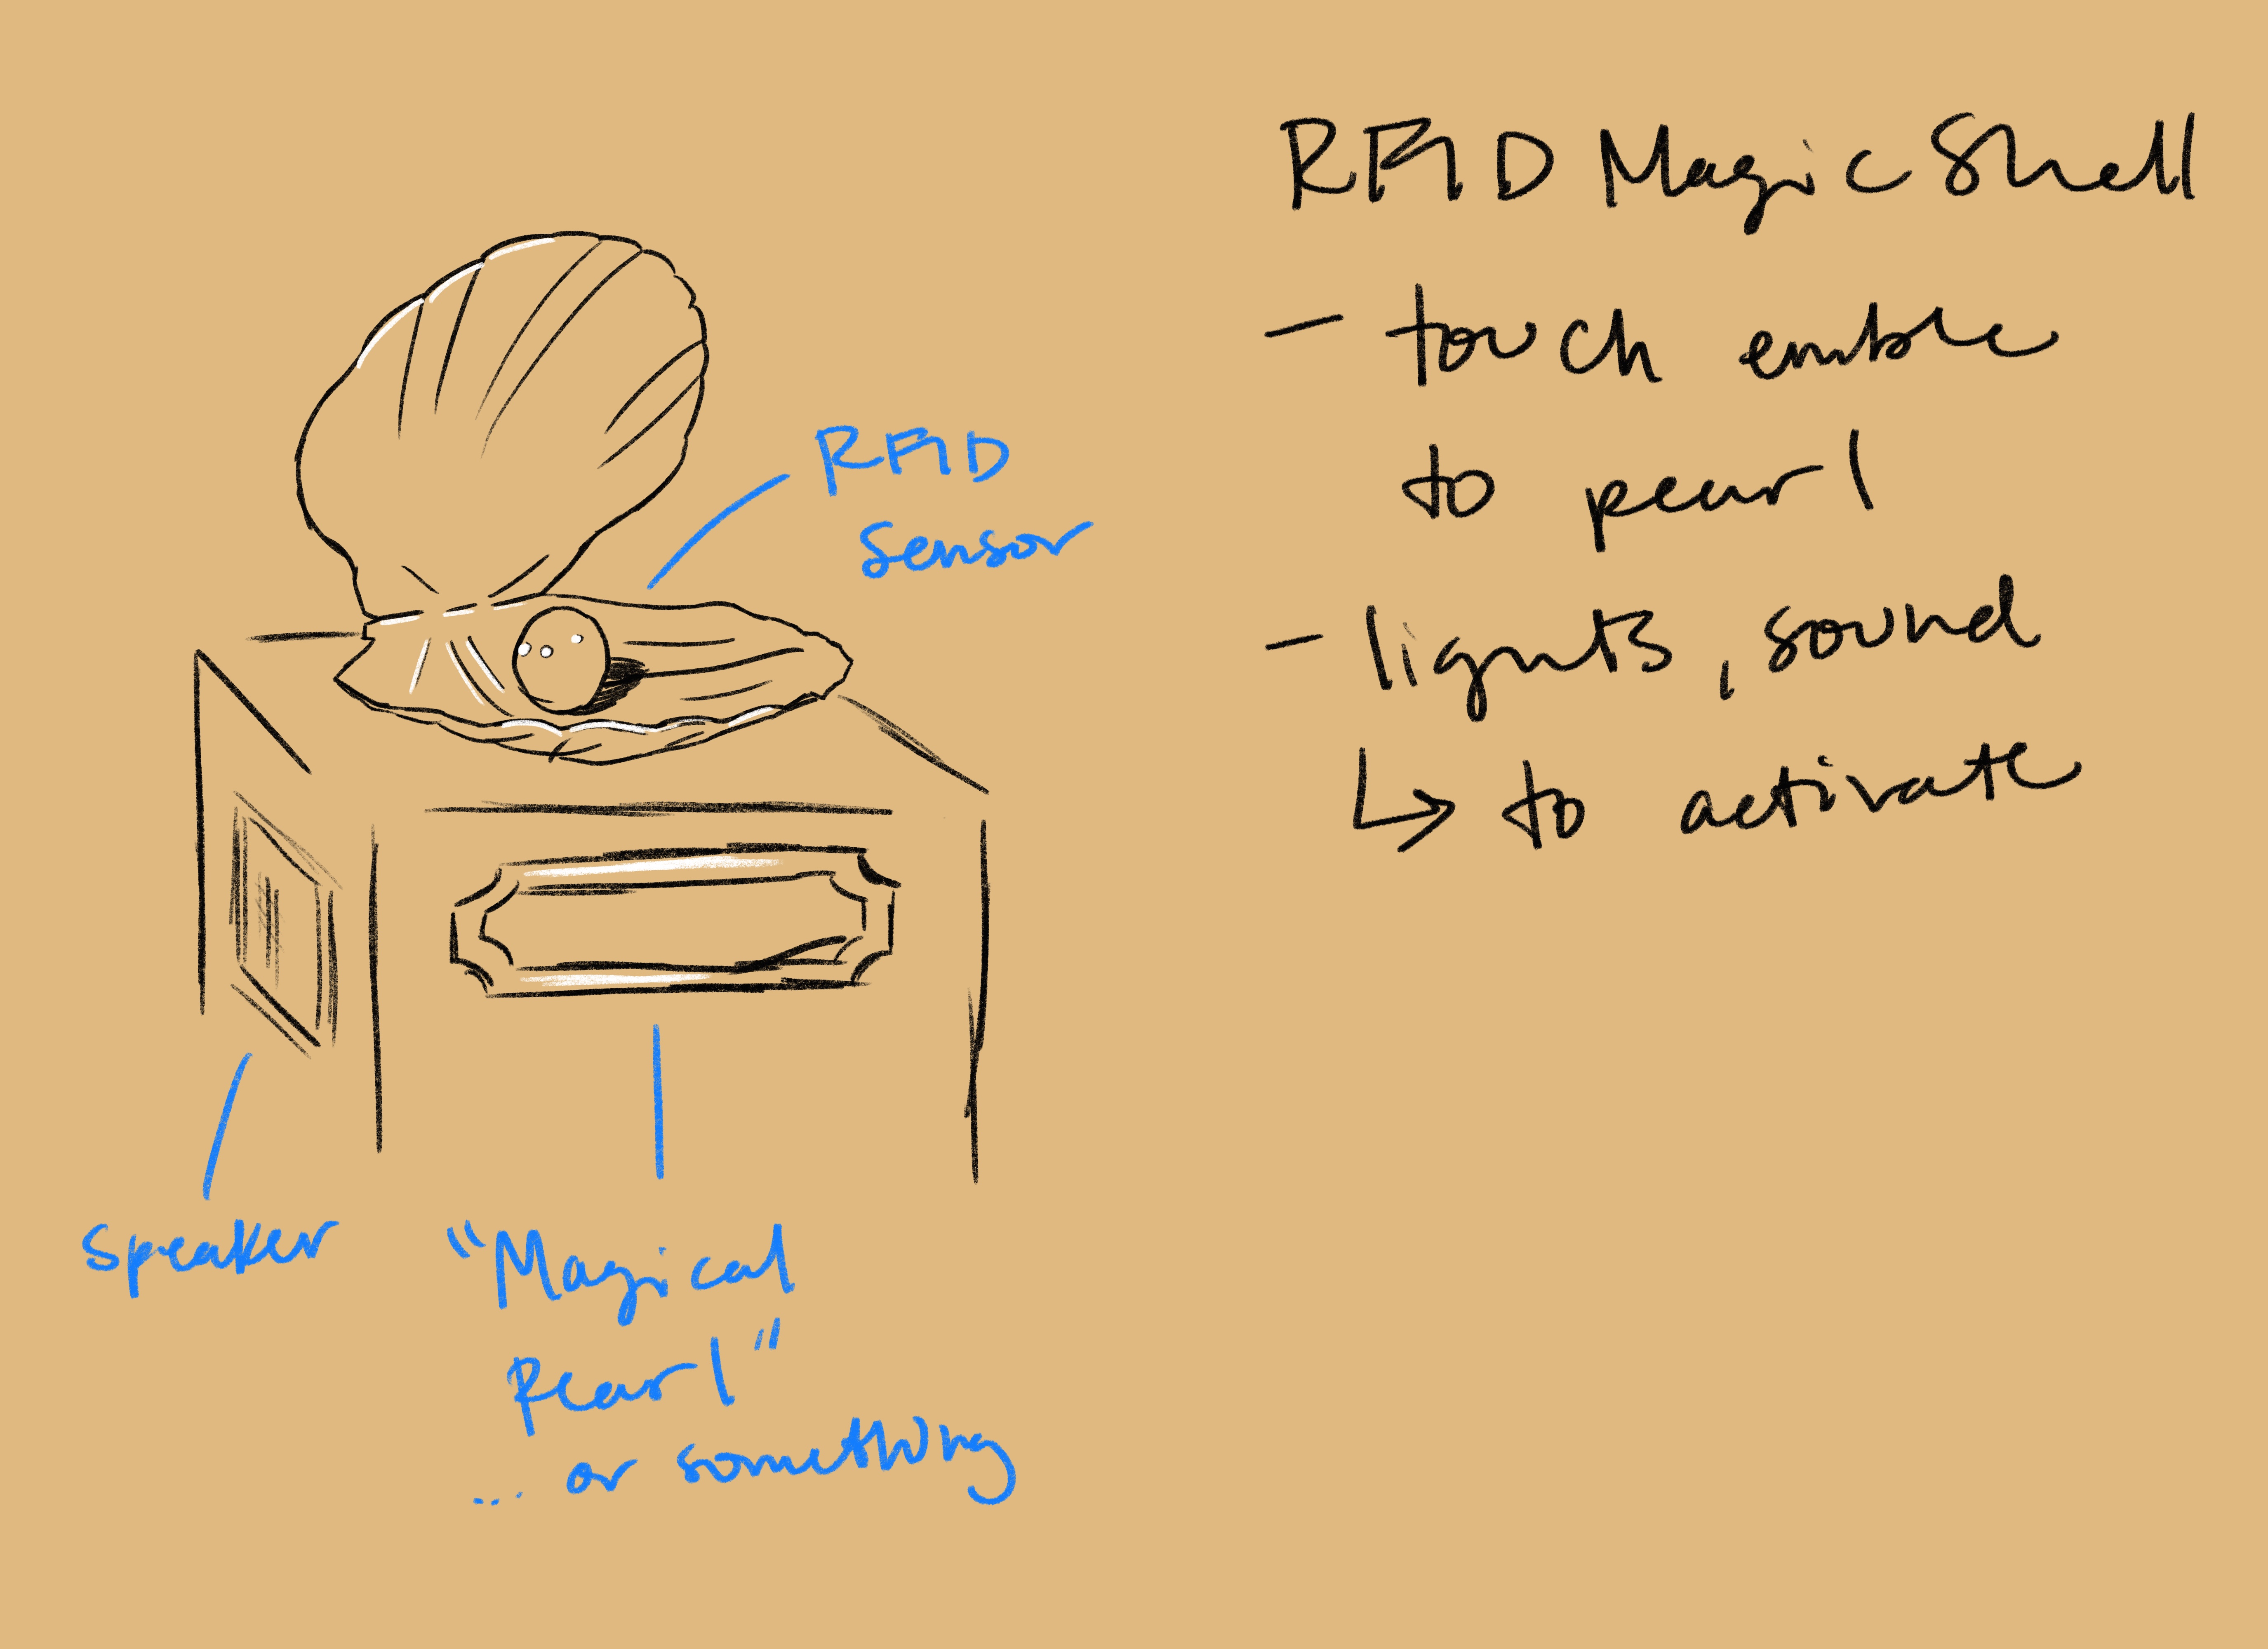 RFID Magic Shell
- touch emble
to pearl
- lights, sound
↳ to activate
RFID
sensor
speaker
"Magical
Pearl"
... or something